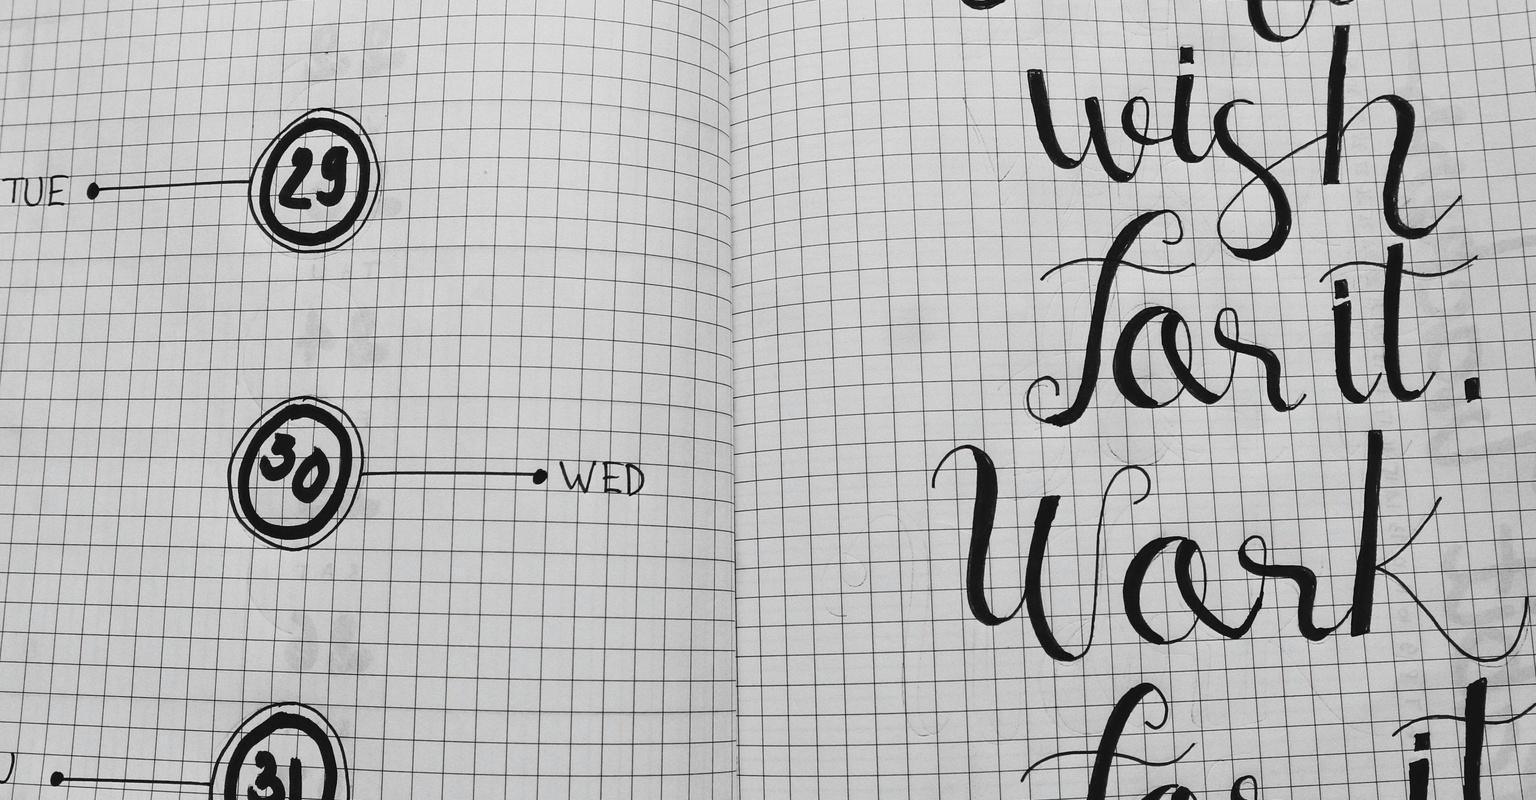 TUE 29
30 WED
31
wish
for it.
Work
for it